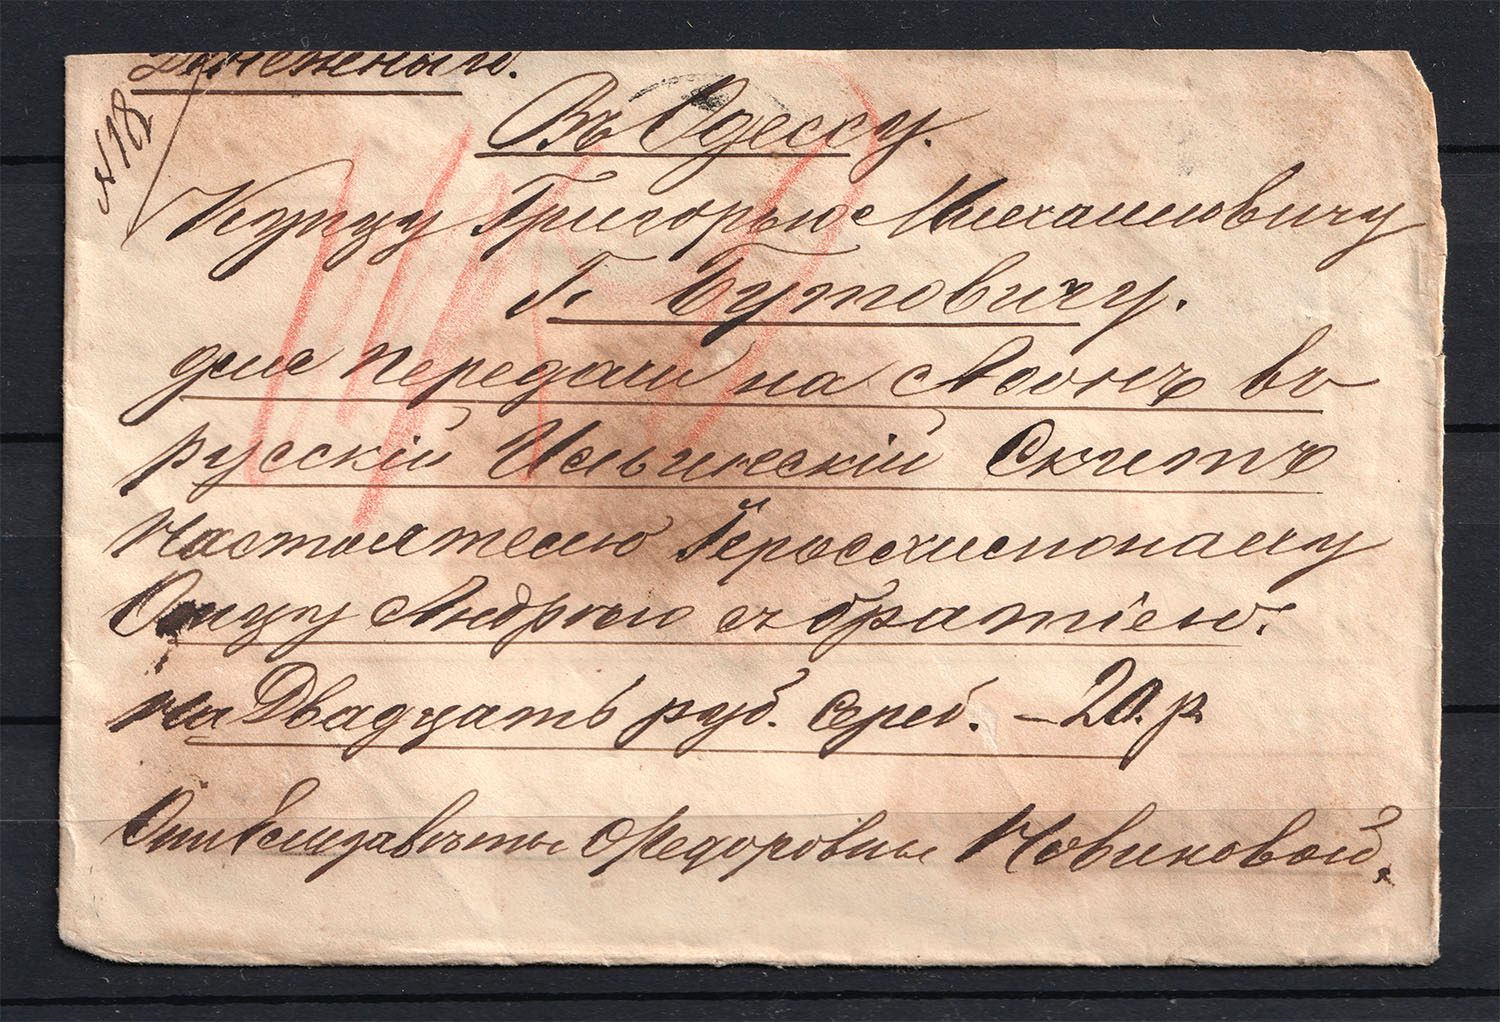 Денежный.
№ 18
Въ Одессу.
Купцу Григорью Михаиловичу
Г. Бутовичу.
для передачи на Афонъ во
русскій Ильинскій Скитъ
Настоятелю Іеросхимонаху
Отцу Андрею съ братіею.
на Двадцать руб. сереб. – 20. р
Отъ Елизаветы Федоровны Новиковой.